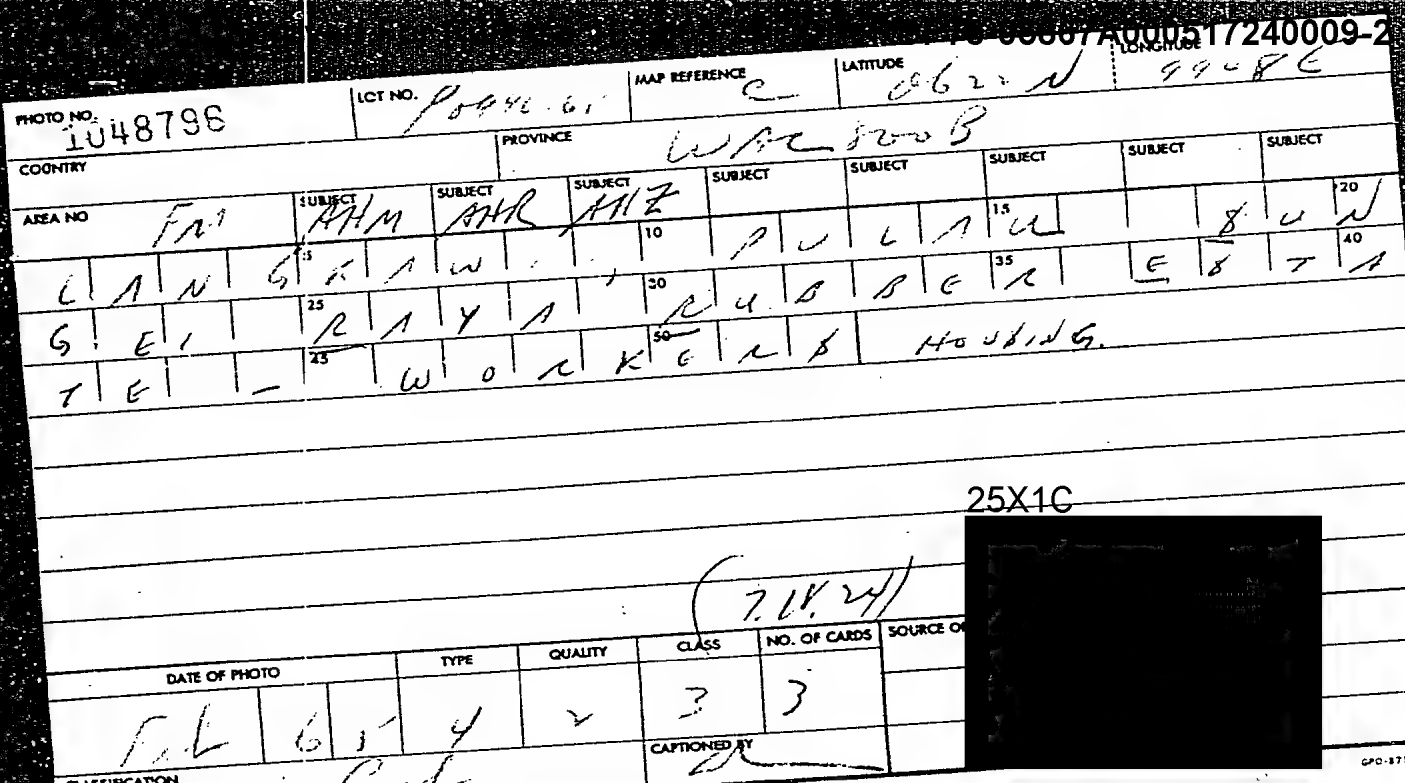 A000517240009-2
PHOTO NO. 1048796 LCT NO. MAP REFERENCE C LATITUDE 0622 N LONGITUDE 9948 E
COUNTRY PROVINCE WAC 800 B
AREA NO SUBJECT AHM SUBJECT AHR SUBJECT AHZ SUBJECT SUBJECT SUBJECT SUBJECT SUBJECT
LANG 5 KAWI, 10 PULA 15 U SU 20 N
GEI 25 RAYA, 30 RUBBE 35 R ESTA 40
TE - 45 WORK 50 ERS HOUSING.
25X1C
(7.18.24)
DATE OF PHOTO TYPE QUALITY CLASS NO. OF CARDS SOURCE OF
Feb 65 4 2 3 3
CLASSIFICATION CAPTIONED BY